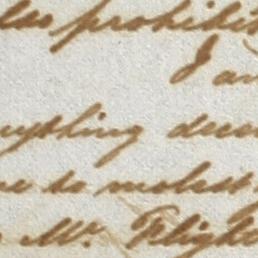 also prohibit
I am
anything deem
me to molest
Mr. Flight